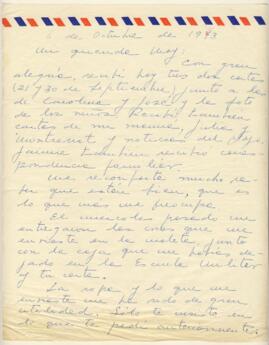 6 de Octubre de 1973
Mi querida Moy:
Con gran
alegría, recibí hoy tres dos cartas
(21 y 30 de Septiembre) junto a la
de Carolina y José y la foto
de los niños. Recibí también
cartas de mi mamá, Julia y
Montserrat y noticias del
Jaime también recibió corres-
pondencia familiar.
Me reconforta mucho sa-
ber que estén bien, que es
lo que más me preocupa.
El miércoles pasado me
entregaron las cosas que me
enviaste en la maleta, junto
con la caja que me habías de-
jado en la Escuela Militar
y tu carta.
La ropa y lo que me
enviaste me ha sido de gran
utilidad. Sólo te insisto en
lo que te pedí anteriormente: